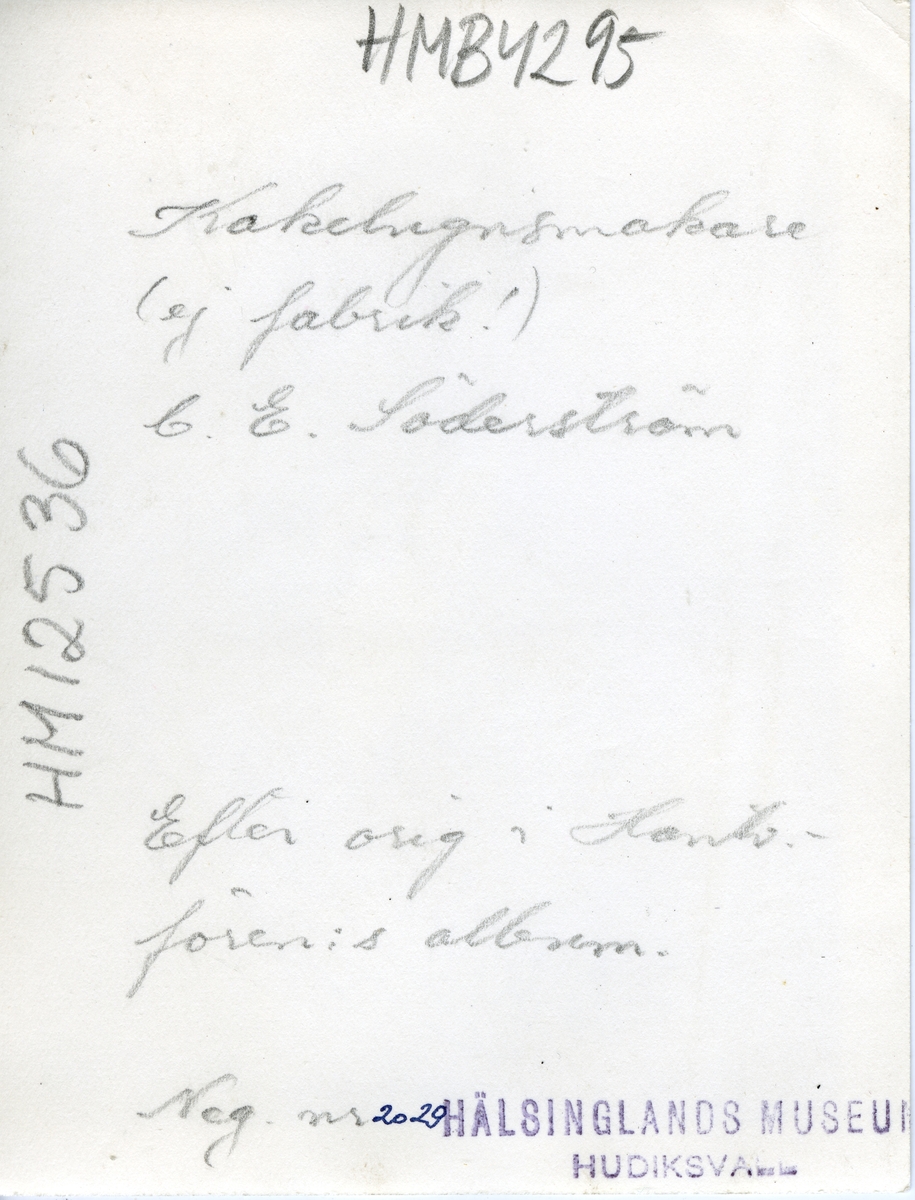 HMB4295
Kakelugnsmakare
(ej fabrik!)
C. E. Söderström
HM12536
Efter orig i Hantv.-
fören:s album.
Neg. nr 2029
HÄLSINGLANDS MUSEUM
HUDIKSVALL